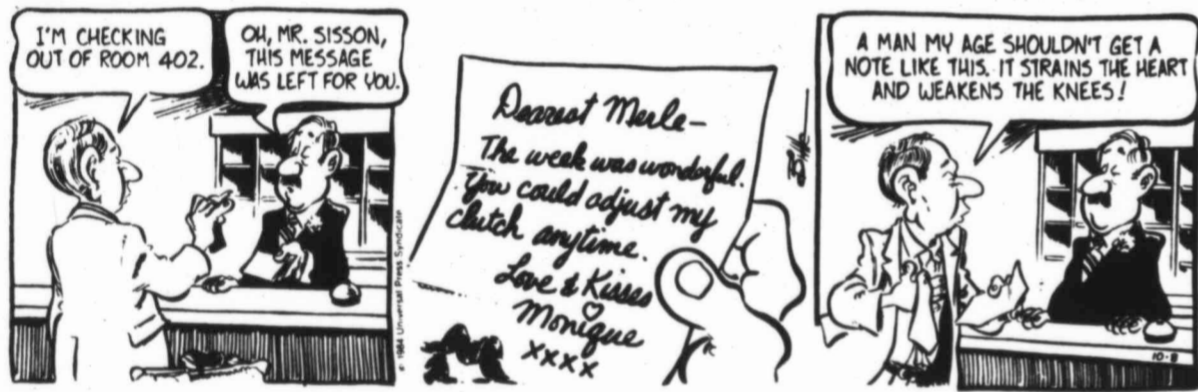 I'M CHECKING
OUT OF ROOM 402.
OH, MR. SISSON,
THIS MESSAGE
WAS LEFT FOR YOU.
© 1984 Universal Press Syndicate
Dearest Merle—
The week was wonderful.
You could adjust my
clutch anytime.
Love & Kisses
Monique
xxxx
A MAN MY AGE SHOULDN'T GET A
NOTE LIKE THIS. IT STRAINS THE HEART
AND WEAKENS THE KNEES!
10-8